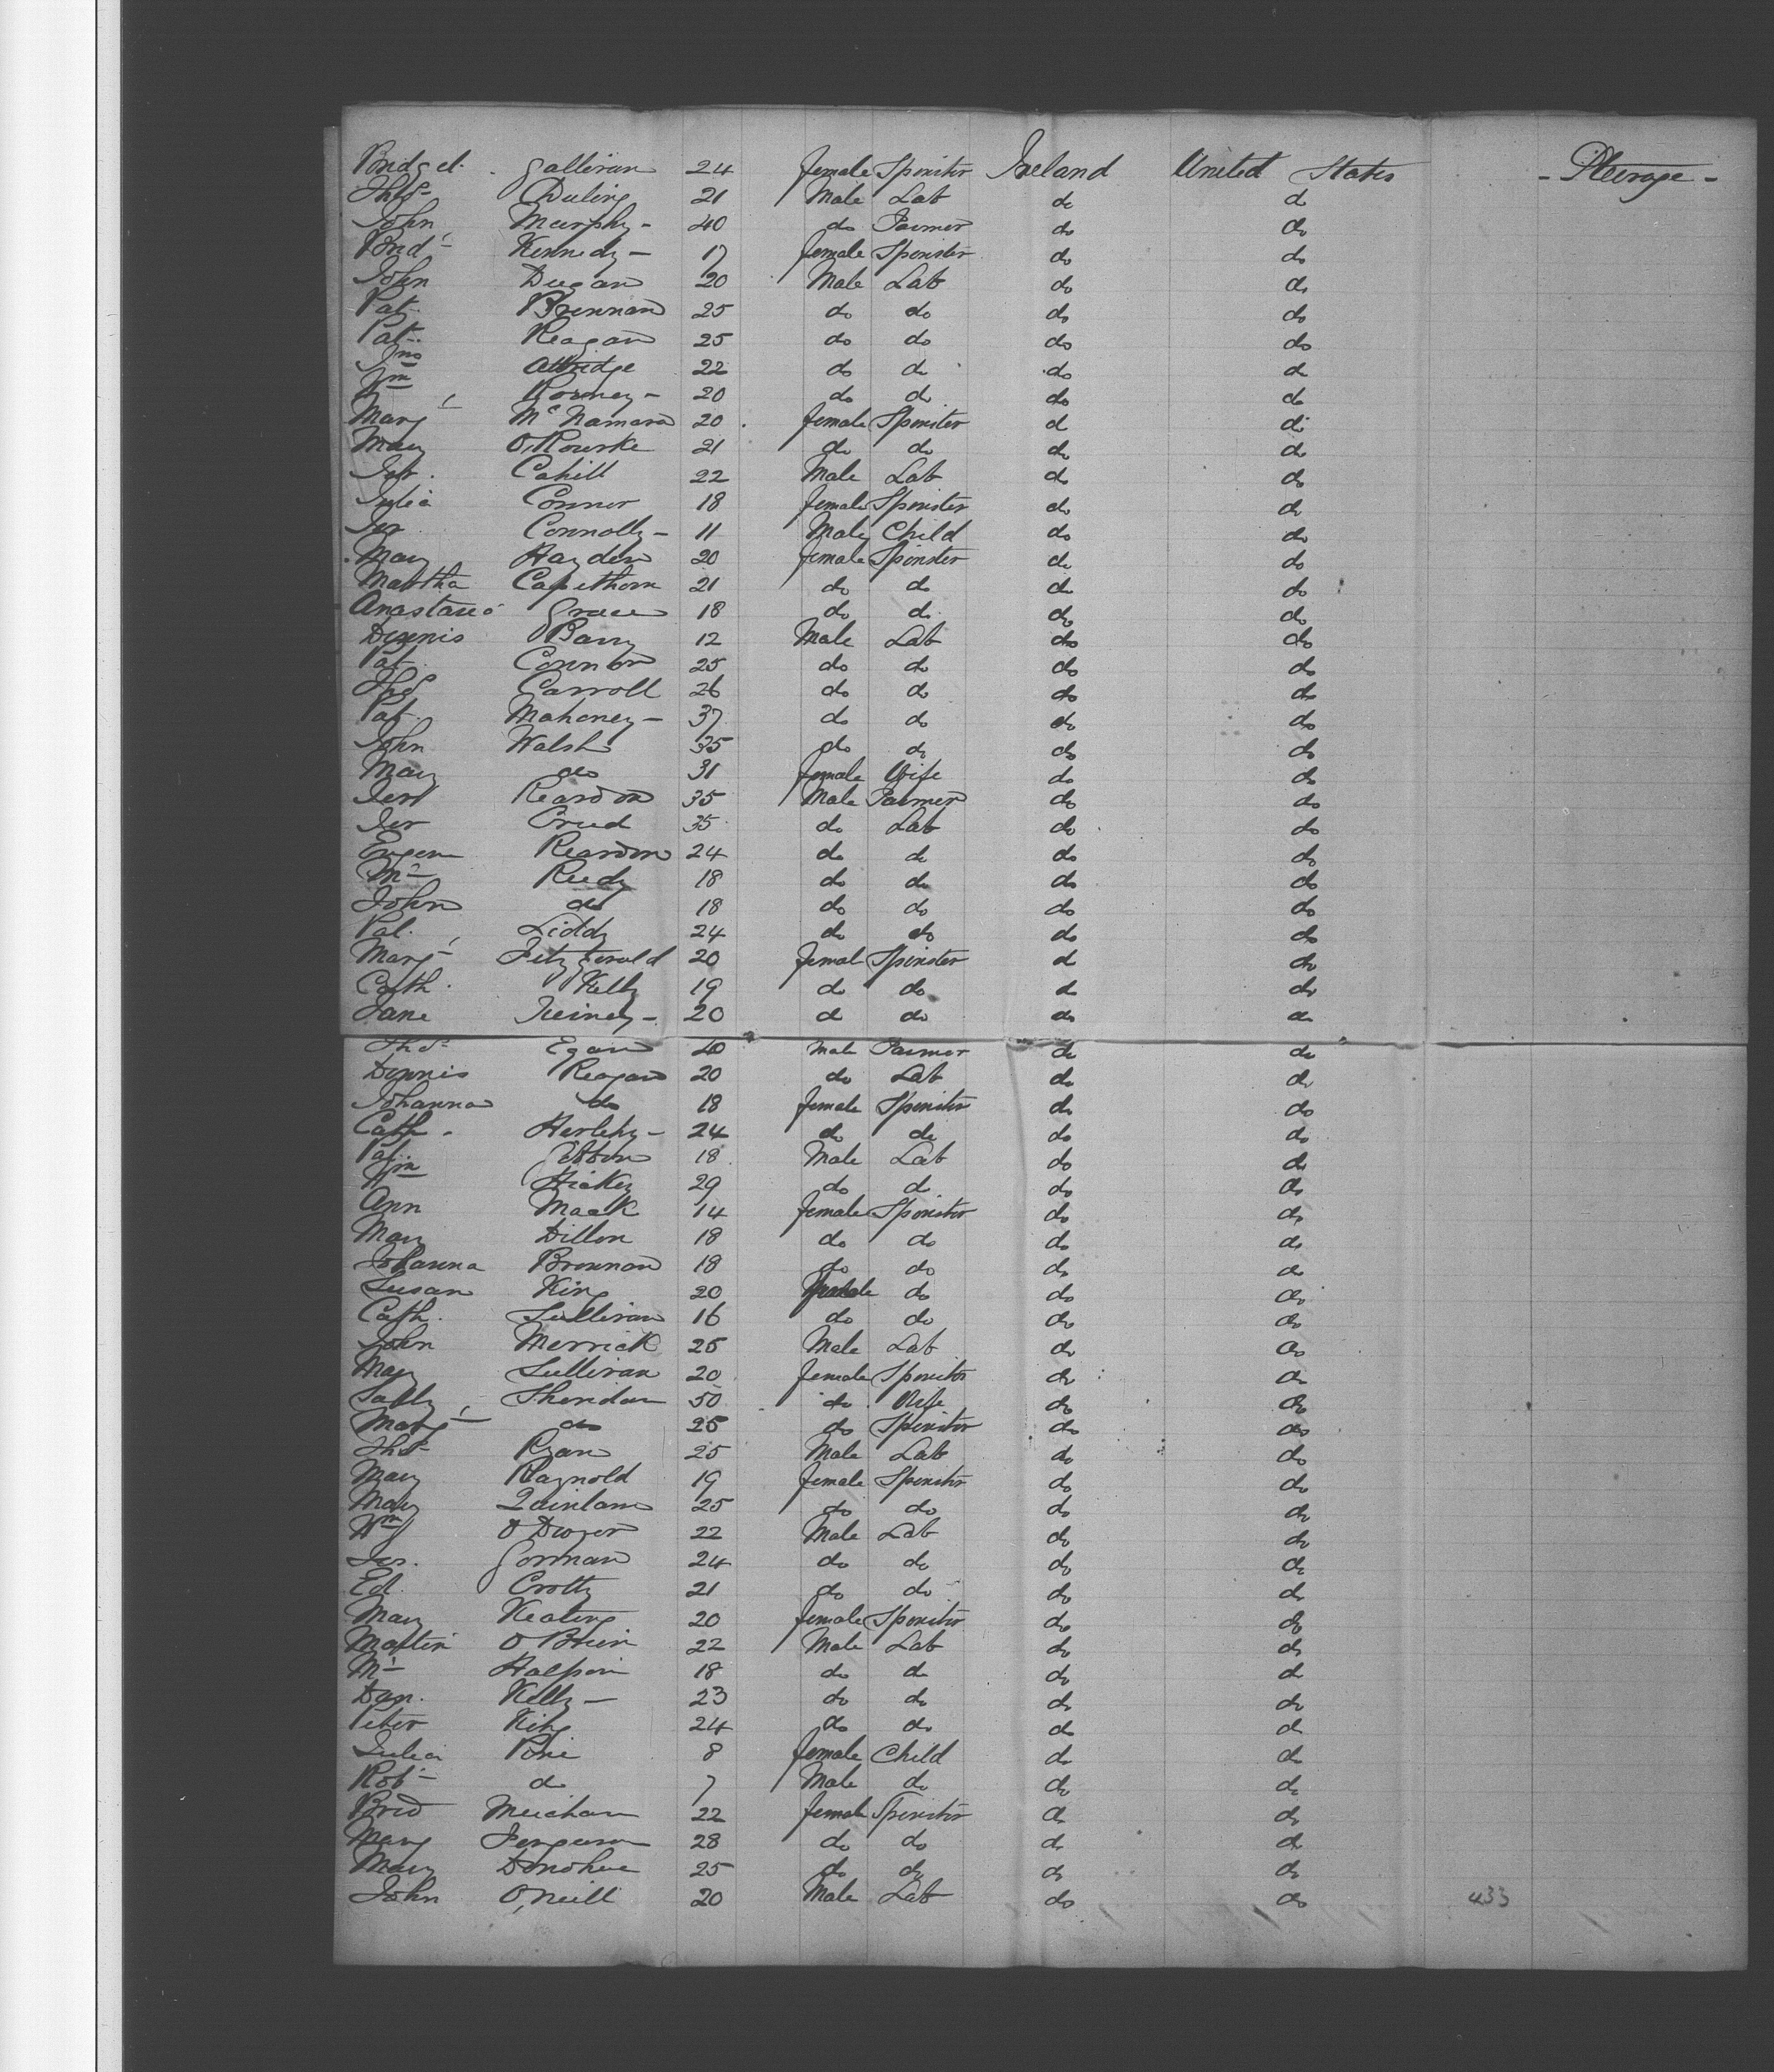 Bridget Gallivan 24 female Spinster Ireland United States - Steerage -
Thos Duling 21 Male Lab do do
John Murphy - 40 do Farmer do do
Brid Kennedy - 17 female Spinster do do
John Dugan 20 Male Lab do do
Pat Brennan 25 do do do do
Pat Reagan 25 do do do do
Jno Attridge 22 do do do do
Wm 20 do do do do
Marg McNamara 20 female Spinster do do
Mary O'Rourke 21 do do do do
Cahill 22 Male Lab do do
Julia Connor 18 female Spinster do do
Jer Connolly - 11 Male Child do do
Mary Hayden 20 female Spinster do do
Martha Capethorn 21 do do do do
Anastasia Grace 18 do do do do
Dennis Barry 12 Male Lab do do
Pat Connton 25 do do do do
Thos Carroll 26 do do do do
Pat Mahoney - 37 do do do do
John Walsh 35 do do do do
Mary do 31 female Wife do do
Jer Reardon 35 Male Farmer do do
Jer Creed 35 do Lab do do
Eugene Reardon 24 do do do do
Ml Reedy 18 do do do do
John do 18 do do do do
Pat Liddy 24 do do do do
Marg Fitzgerald 20 femal Spinster do do
Cath Kelly 19 do do do do
Jane 20 do do do do
Thos Egan 40 Male Farmer do do
Dennis Reagan 20 do Lab do do
Johanna do 18 female Spinster do do
Cath - Herlehy - 24 do do do do
Pat 18 Male Lab do do
Wm Hickey 29 do do do do
Ann Mack 14 female Spinster do do
Mary Dillon 18 do do do do
Johanna Brennan 18 do do do do
Susan King 20 female do do do
Cath. Sullivan 16 do do do do
John Merrick 25 Male Lab do do
Mary Sullivan 20 female Spinster do do
Sally Sheridan 50 do Wife do do
Marg do 25 do Spinster do do
Thos Ryan 25 Male Lab do do
Mary Raynold 19 female Spinster do do
Mary Quinlan 25 do do do do
Wm O Dwyer 22 Male Lab do do
Jas. Gorman 24 do do do do
Ed Crotty 21 do do do do
Mary Keating 20 female Spinster do do
Martin O Brien 22 Male Lab do do
Ml Halpin 18 do do do do
Dan. Kelly - 23 do do do do
Peter King 24 do do do do
Julia 8 female Child do do
Robt do 7 Male do do do
Brid Meehan 22 female Spinster do do
Mary Ferguson 28 do do do do
Mary Donohue 25 do do do do
John O'Neill 20 Male Lab do do 433